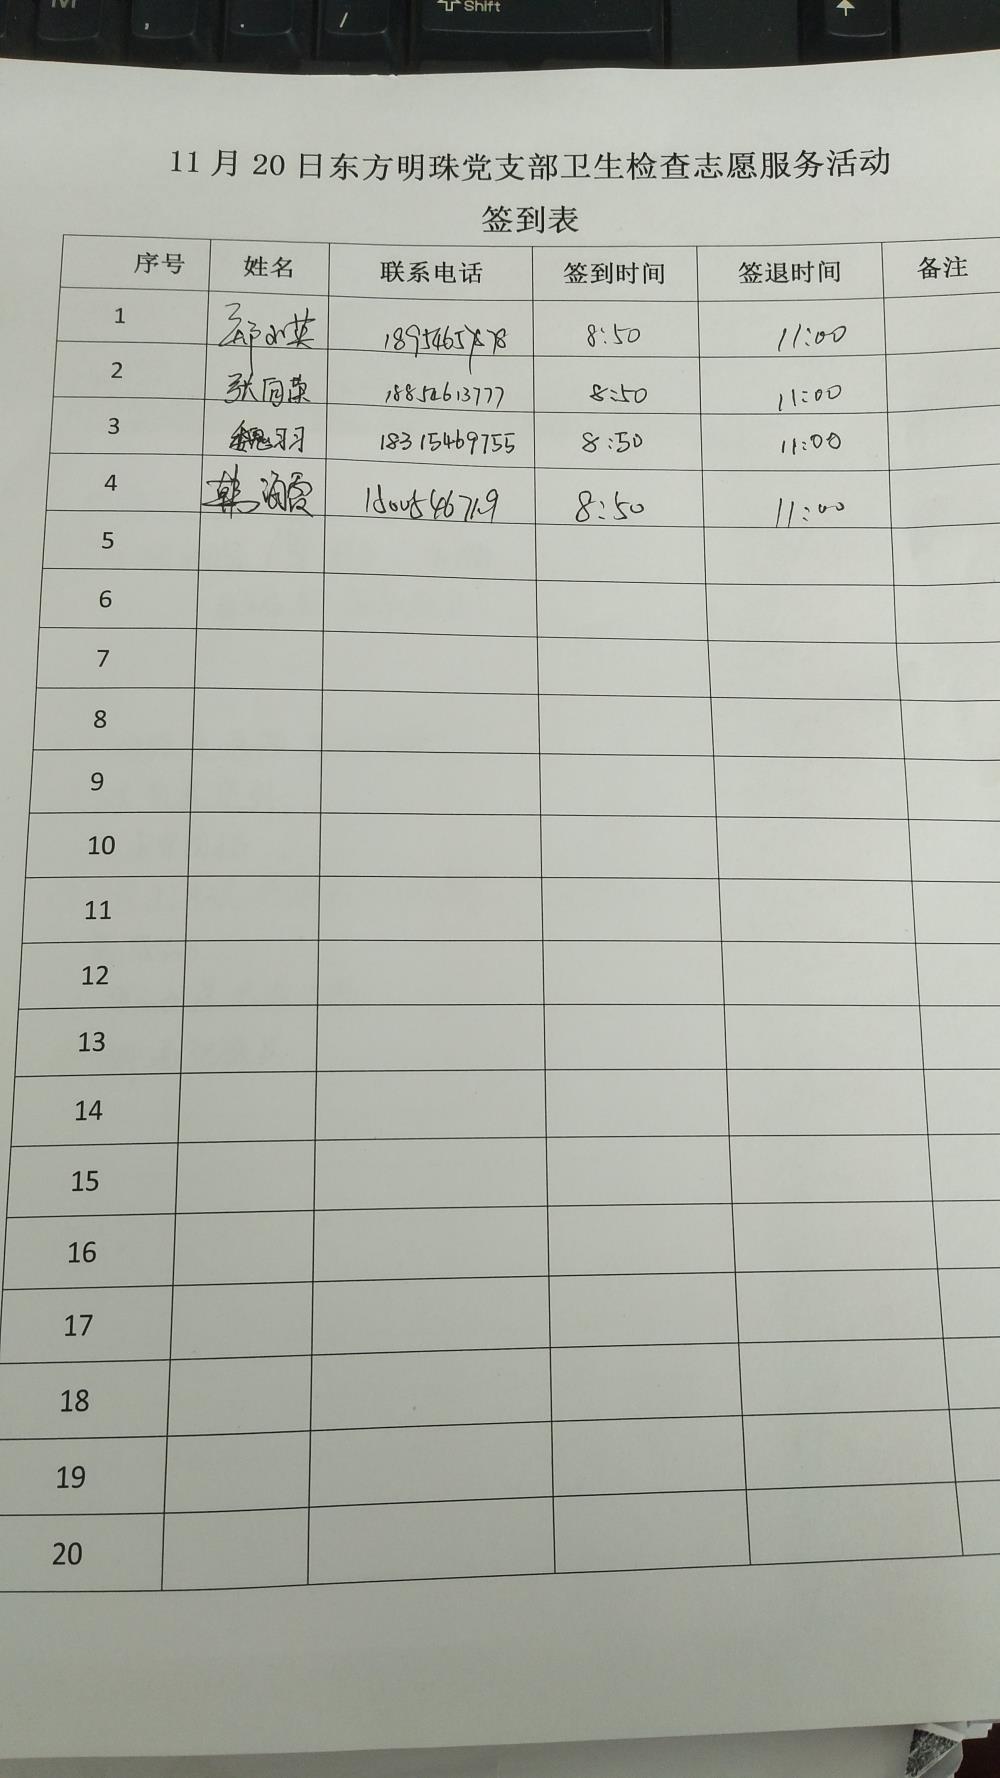 Shift
, . /
11 月 20 日东方明珠党支部卫生检查志愿服务活动
签到表
序号 姓名 联系电话 签到时间 签退时间 备注
1 8:50 11:00
2 张向荣 18852613777 8:50 11:00
3 魏羽 18315469755 8:50 11:00
4 韩海霞 8:50 11:00
5
6
7
8
9
10
11
12
13
14
15
16
17
18
19
20